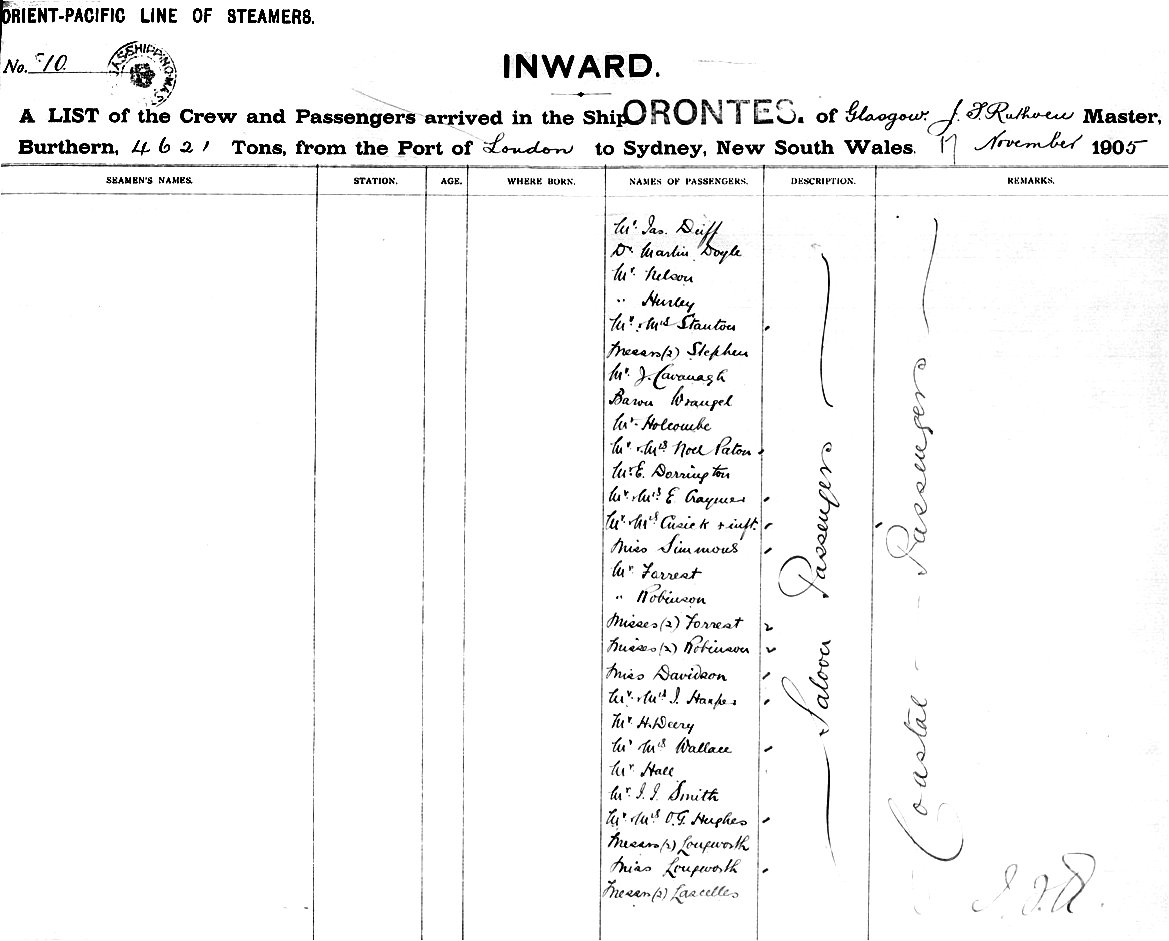 ORIENT-PACIFIC LINE OF STEAMERS.
No. 10.
INWARD.
A LIST of the Crew and Passengers arrived in the Ship ORONTES. of Glasgow. J. F. Ruthven Master,
Burthern, 4621 Tons, from the Port of London to Sydney, New South Wales. 17 November 1905
SEAMEN'S NAMES. STATION. AGE. WHERE BORN. NAMES OF PASSENGERS. DESCRIPTION. REMARKS.
Mr. Jas. Duff
Dr. Martin Doyle
Mr. Nelson
" Hurley
Mr. Mrs Stanton
Messrs (2) Stephen
Mr. J. Cavanagh
Baron Wrangel
Mr. Holcombe
Mr. Mrs Noel Paton
Mr. E. Dorrington
Mr. Mrs E. Craymer
Mr. Mrs Cusick + inft.
Miss Simmons
Mr. Forrest
" Robinson
Misses (2) Forrest
Misses (2) Robinson
Miss Davidson
Mr. Mrs J. Harper
Mr. H. Deery
Mr Mrs Wallace
Mr Hall
Mr. J. J. Smith
Mr. Mrs O. G. Hughes
Messrs (2) Longworth
Miss Longworth
Messrs (2) Lascelles
Saloon Passengers
Coastal - Passengers